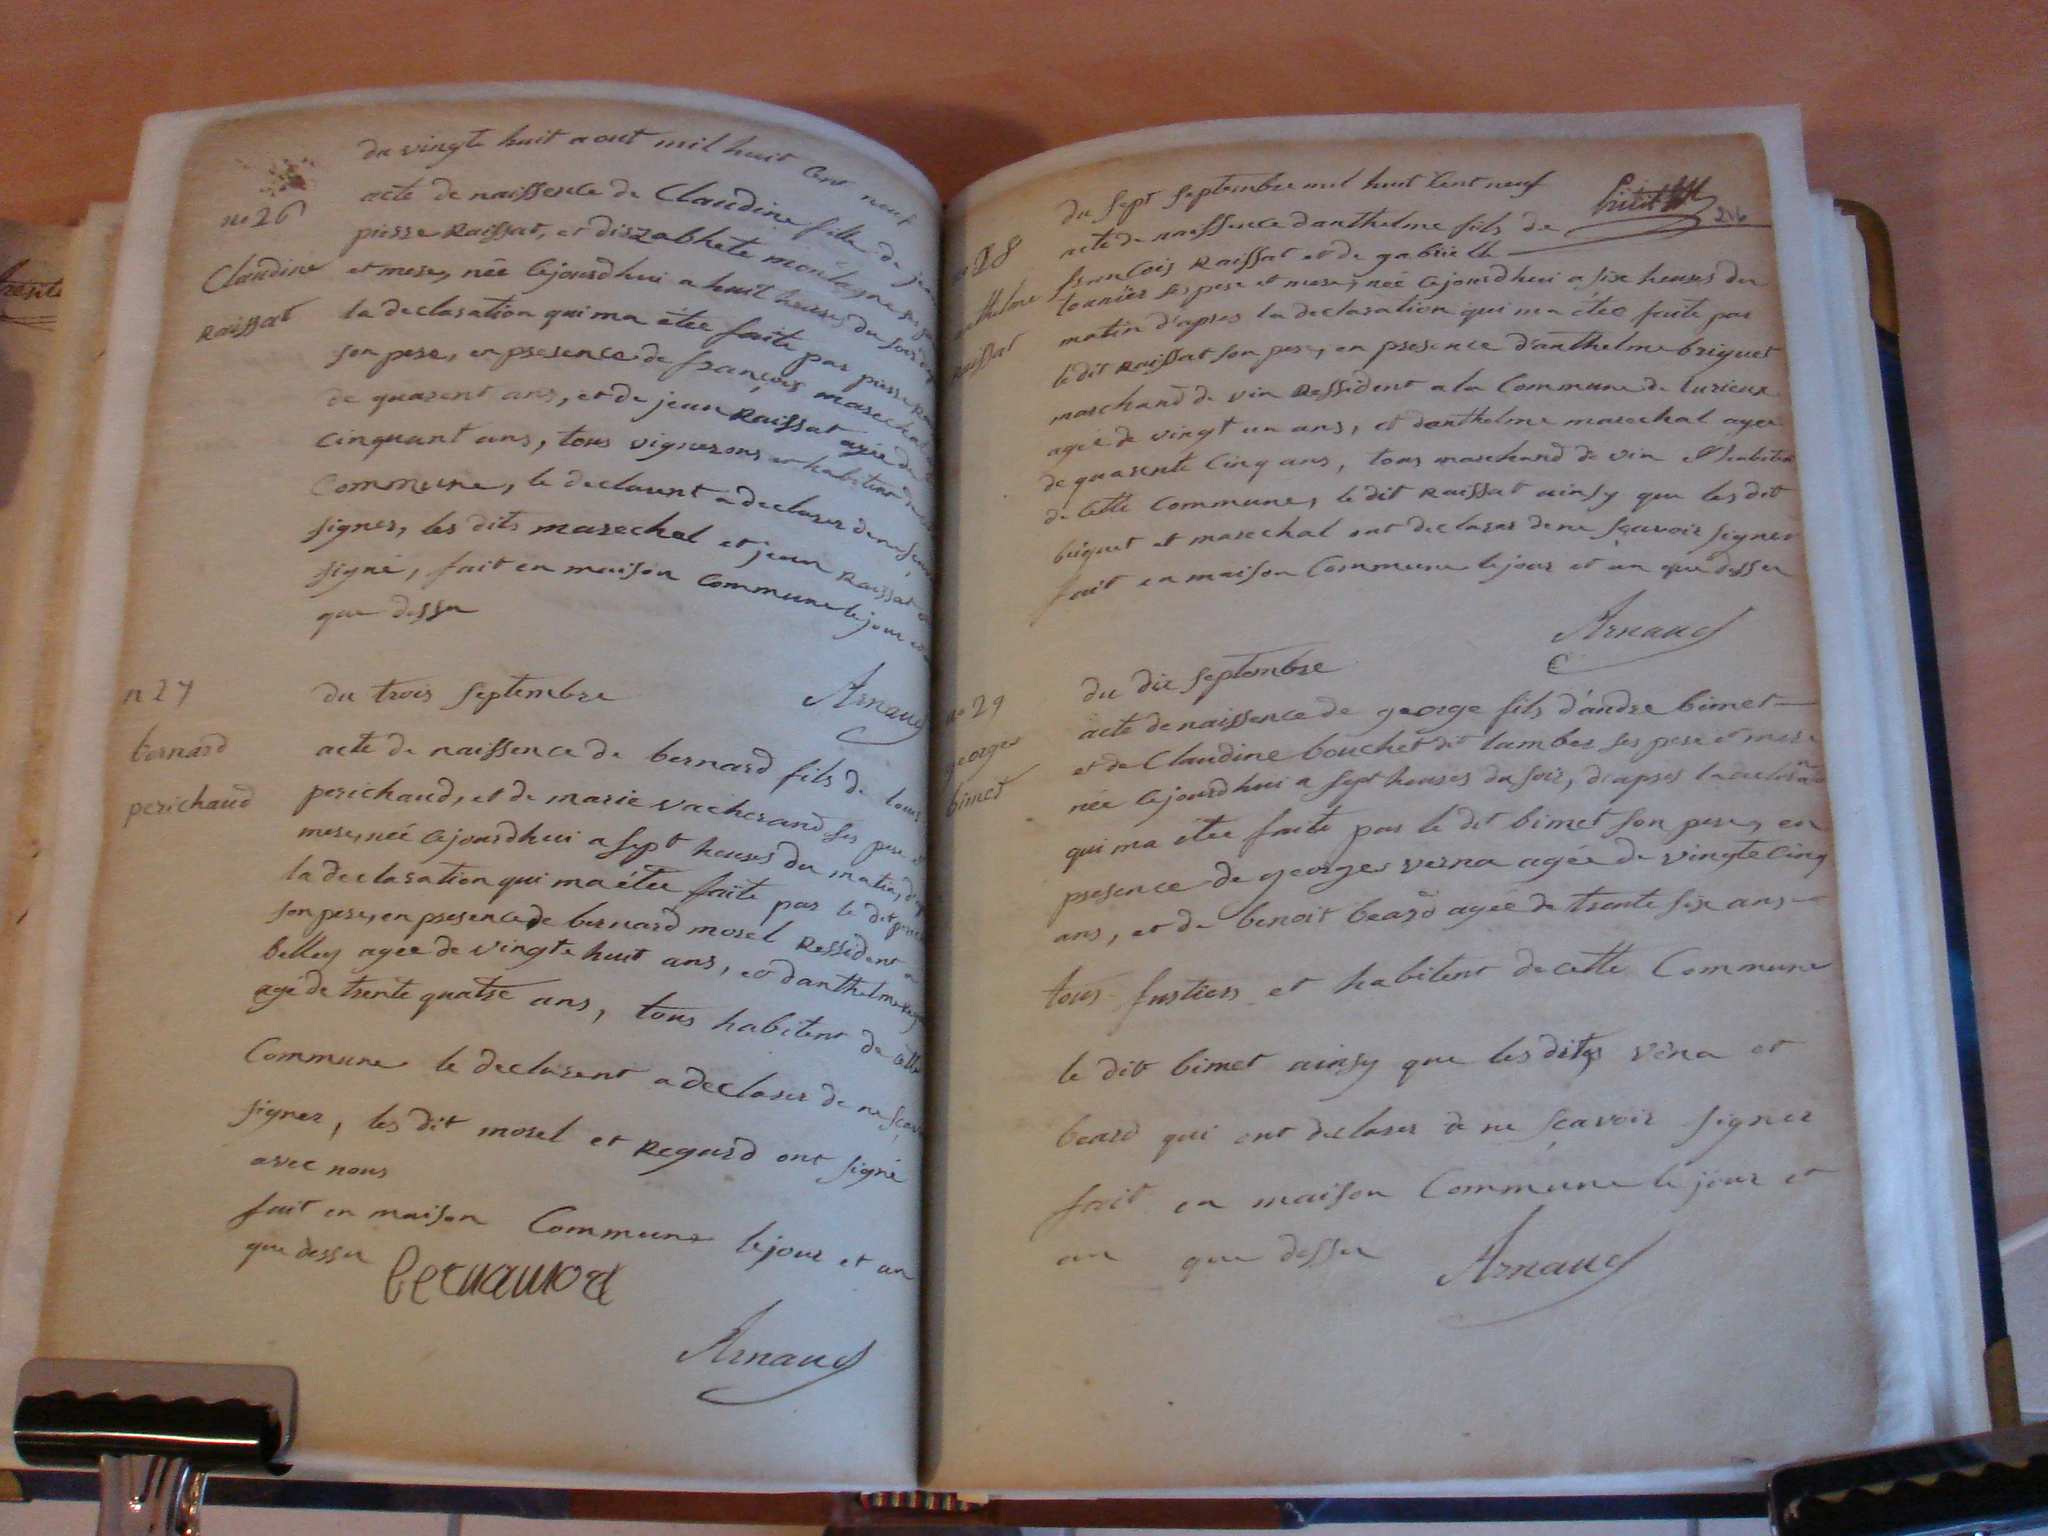 du vingte huit aout mil huit Cent neuf
no 26
acte de naissence de Claudine fille de jean
pierre Raissat, et diszabhete montagne ses
Claudine
et mere, née cejourdhui a huit heures du soir
Raissat
la declaration qui ma étee faite par pierre
son pere, en presence de françois marechal
de quarent ans, et de jean Raissat agée de
cinquant ans, tous vignerons et habitent de
Commune, le declarent a declarer de ne
signer, les dits marechal et jean Raissat
signé, fait en maison Commune le jour et
que dessu
Arnaud
n 27
du trois septembre
bernard
perichaud
acte de naissence de bernard fils de louis
perichaud, et de marie vacherand ses pere et
mere, née cejourdhui a sept heures du matin,
la declaration qui ma étee faite par le dit
son pere, en presence de bernard morel Ressident a
belley agée de vingte huit ans, et danthelme
agé de trente quatre ans, tous habitent de cette
Commune le declarent a declarer de ne
signer, les dit morel et Regard ont signé
avec nous
fait en maison Commune le jour et an
que dessu
Arnaud
216
du sept septembre mil huit Cent neuf
28
acte de naissence danthelme fils de
françois Raissat et de gabrielle
tournier ses pere et mere, née cejourdhui a six heures du
matin d'apres la declaration qui ma étee faite par
Raissat
le dit Raissat son pere, en presence d'anthelme briquet
marchand de vin Ressident a la Commune de
agée de vingt un ans, et danthelme marechal agee
de quarente cinq ans, tous marchand de vin et habitent
de cette Commune, le dit Raissat ainsy que les dit
briquet et marechal ont declarer de ne sçavoir signer
fait en maison Commune le jour et an que dessu
Arnaud
no 29
george
bimet
du dix septembre
acte de naissence de george fils d'andre bimet
et de Claudine bouchet dit lamber ses pere et mere
née cejourdhui a sept heures du soir, d'apres la declaration
qui ma étee faite par le dit bimet son pere, en
presence de george verna agée de vingte cinq
ans, et de benoit beard agée de trente six ans
tous fustiers et habitent de cette Commune
le dit bimet ainsy que les dites vèna et
beard qui ont declarer de ne sçavoir signer
fait en maison Commune le jour et
an que dessu
Arnaud